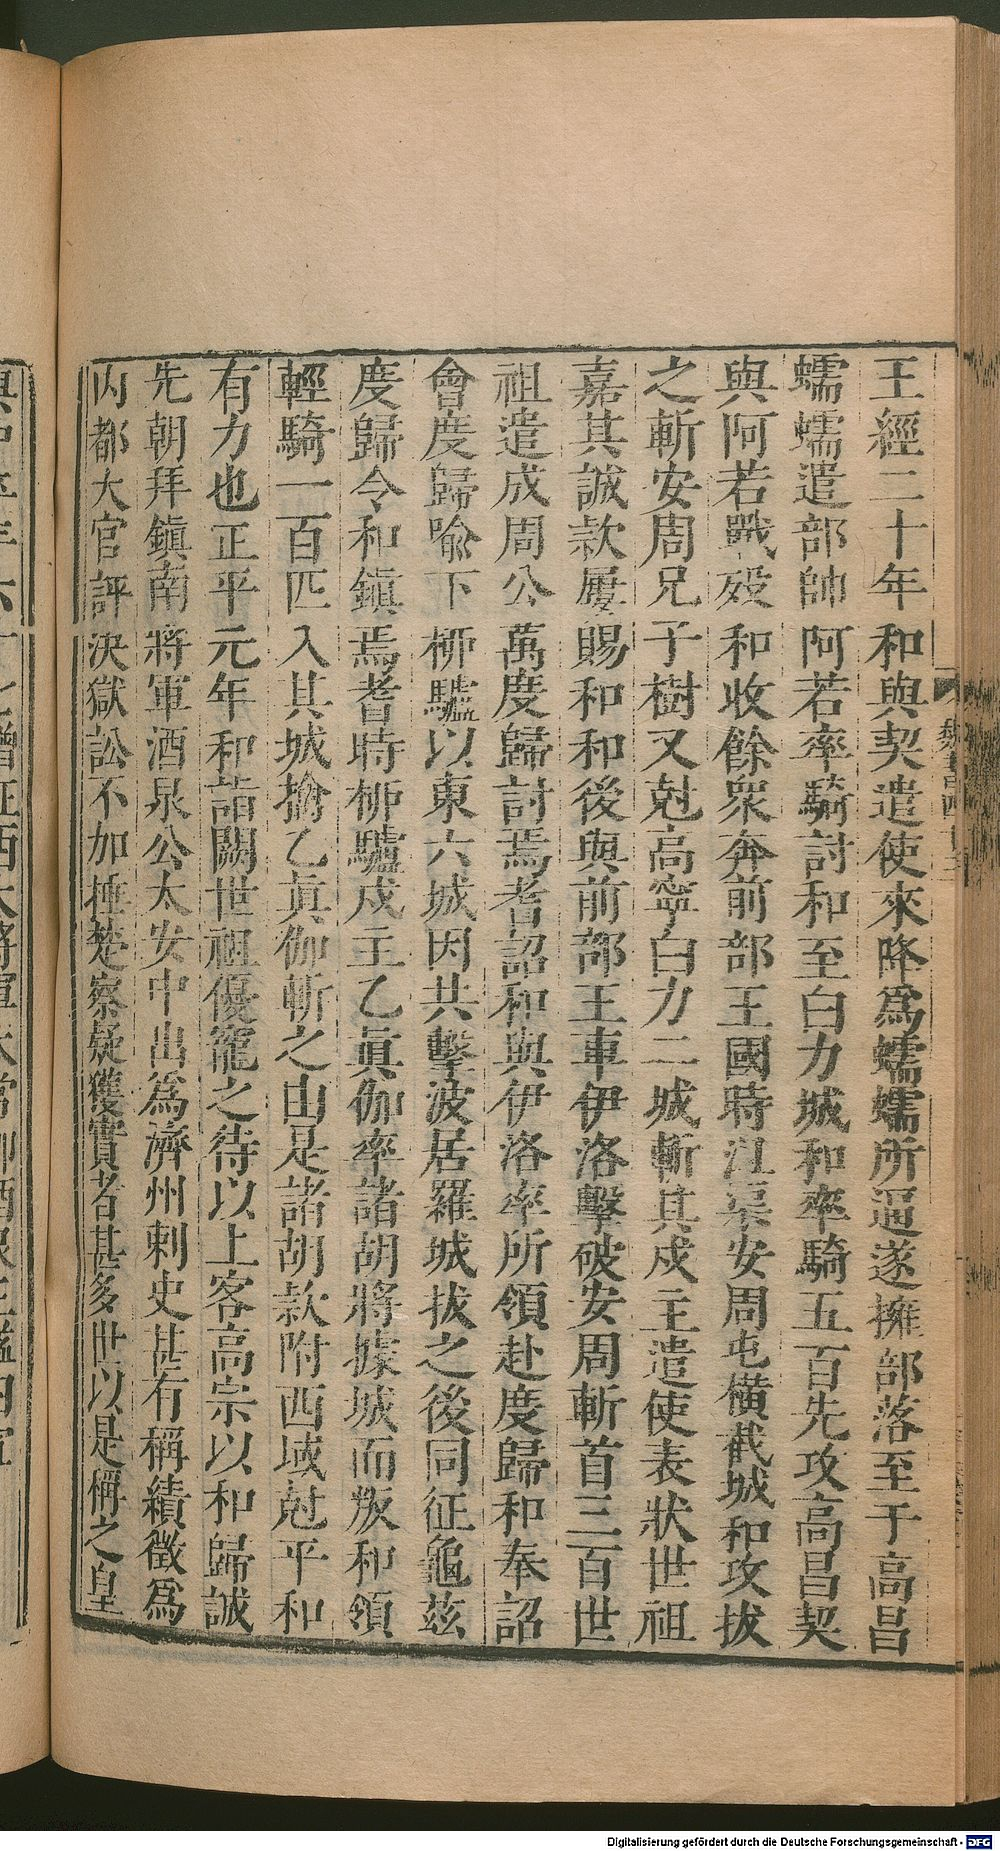 王經二十年和與契遣使來降爲蠕蠕所逼遂擁部落至于高昌
蠕蠕遣部帥阿若率騎討和至白力城和率騎五百先攻高昌契
與阿若戰歿和收餘衆奔前部王國時沮渠安周屯橫截城和攻拔
之斬安周兄子樹又尅高寧白力二城斬其戍主遣使表狀世祖
嘉其誠款屢賜和和後與前部王車伊洛擊破安周斬首三百世
祖遣成周公萬度歸討焉耆詔和與伊洛率所領赴度歸和奉詔
會度歸喻下柳驢以東六城因共擊波居羅城拔之後同征龜茲
度歸令和鎮焉耆時柳驢戍主乙眞伽率諸胡將據城而叛和領
輕騎一百匹入其城擒乙眞伽斬之由是諸胡款附西域尅平和
有力也正平元年和詣闕世祖優寵之待以上客高宗以和歸誠
先朝拜鎮南將軍酒泉公太安中出爲濟州刺史甚有稱績徵爲
內都大官評決獄訟不加捶楚察疑獲實者甚多世以是稱之皇
Digitalisierung gefördert durch die Deutsche Forschungsgemeinschaft - DFG